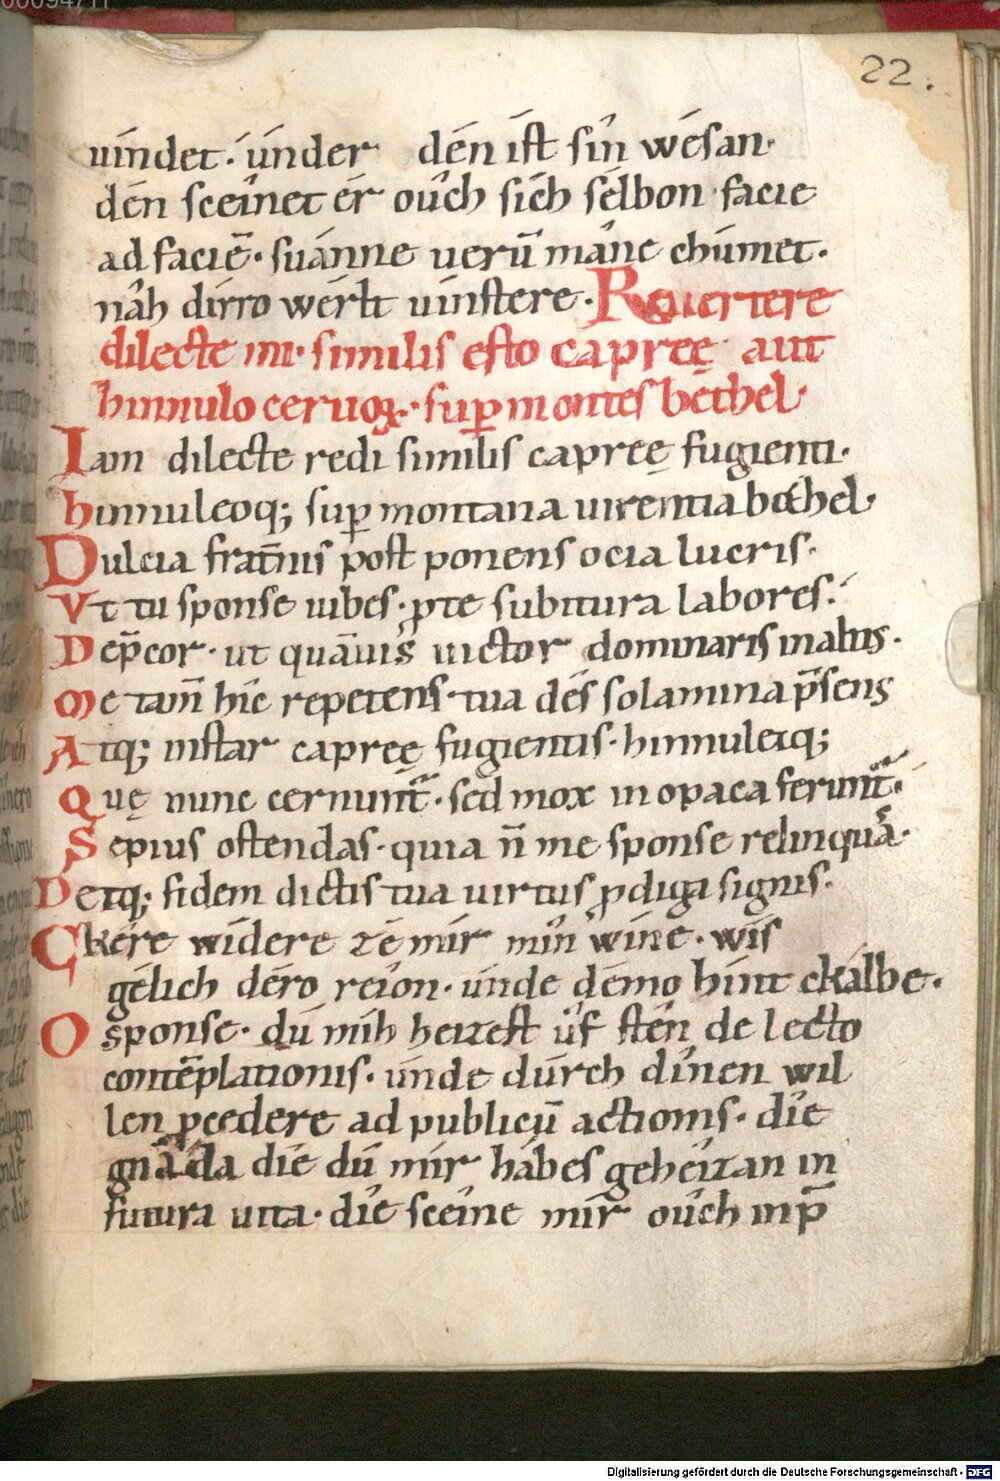 22.
uíndet· únder dén íst sîn wésan·
dén sceînet ér oûch síeh sélbon facie
ad faciē· suánne uerū mâne chúmet·
nâh dírro wérlt uinstere· Reuertere
dilecte mi· similis esto capreę aut
hinnulo ceruoꝝ· suꝑ montes béthel·
Iam dilecte redi similis capreę fugienti·
hinnuleoq; suꝑ montana uirentia bęthel·
Dulcia frat̄nis post ponens ocia lucris·
Vt tu sponse iubes· ꝑte subitura labores·
Dep̄cor· ut quāuis uictor dominaris in altis·
Me tam̄ hic repetens tua des solamina p̄sens
Atq; instar capreę fugientis· hinnuleiq;
Quę nunc cernunt᷑· sed mox in opaca ferunt᷑·
Sepius ostendas· quia n̄ me sponse relinquās·
Detq; fidem dictis tua uirtus ꝓdiga signis·
Ckêre wídere zê mír mîn wíne· wís
gélich déro reîon· únde démo hínt ckálbe·
O sponse· dú míh heizest ûf stên de lecto
contēplationis· únde dúrch dînen wil
len ꝓcedere ad publicū actionis· díe
gnâda díe dú mír hábes geheîzan in
futura uita· díe sceîne mír oûch in p̄
Digitalisierung gefördert durch die Deutsche Forschungsgemeinschaft - DFG